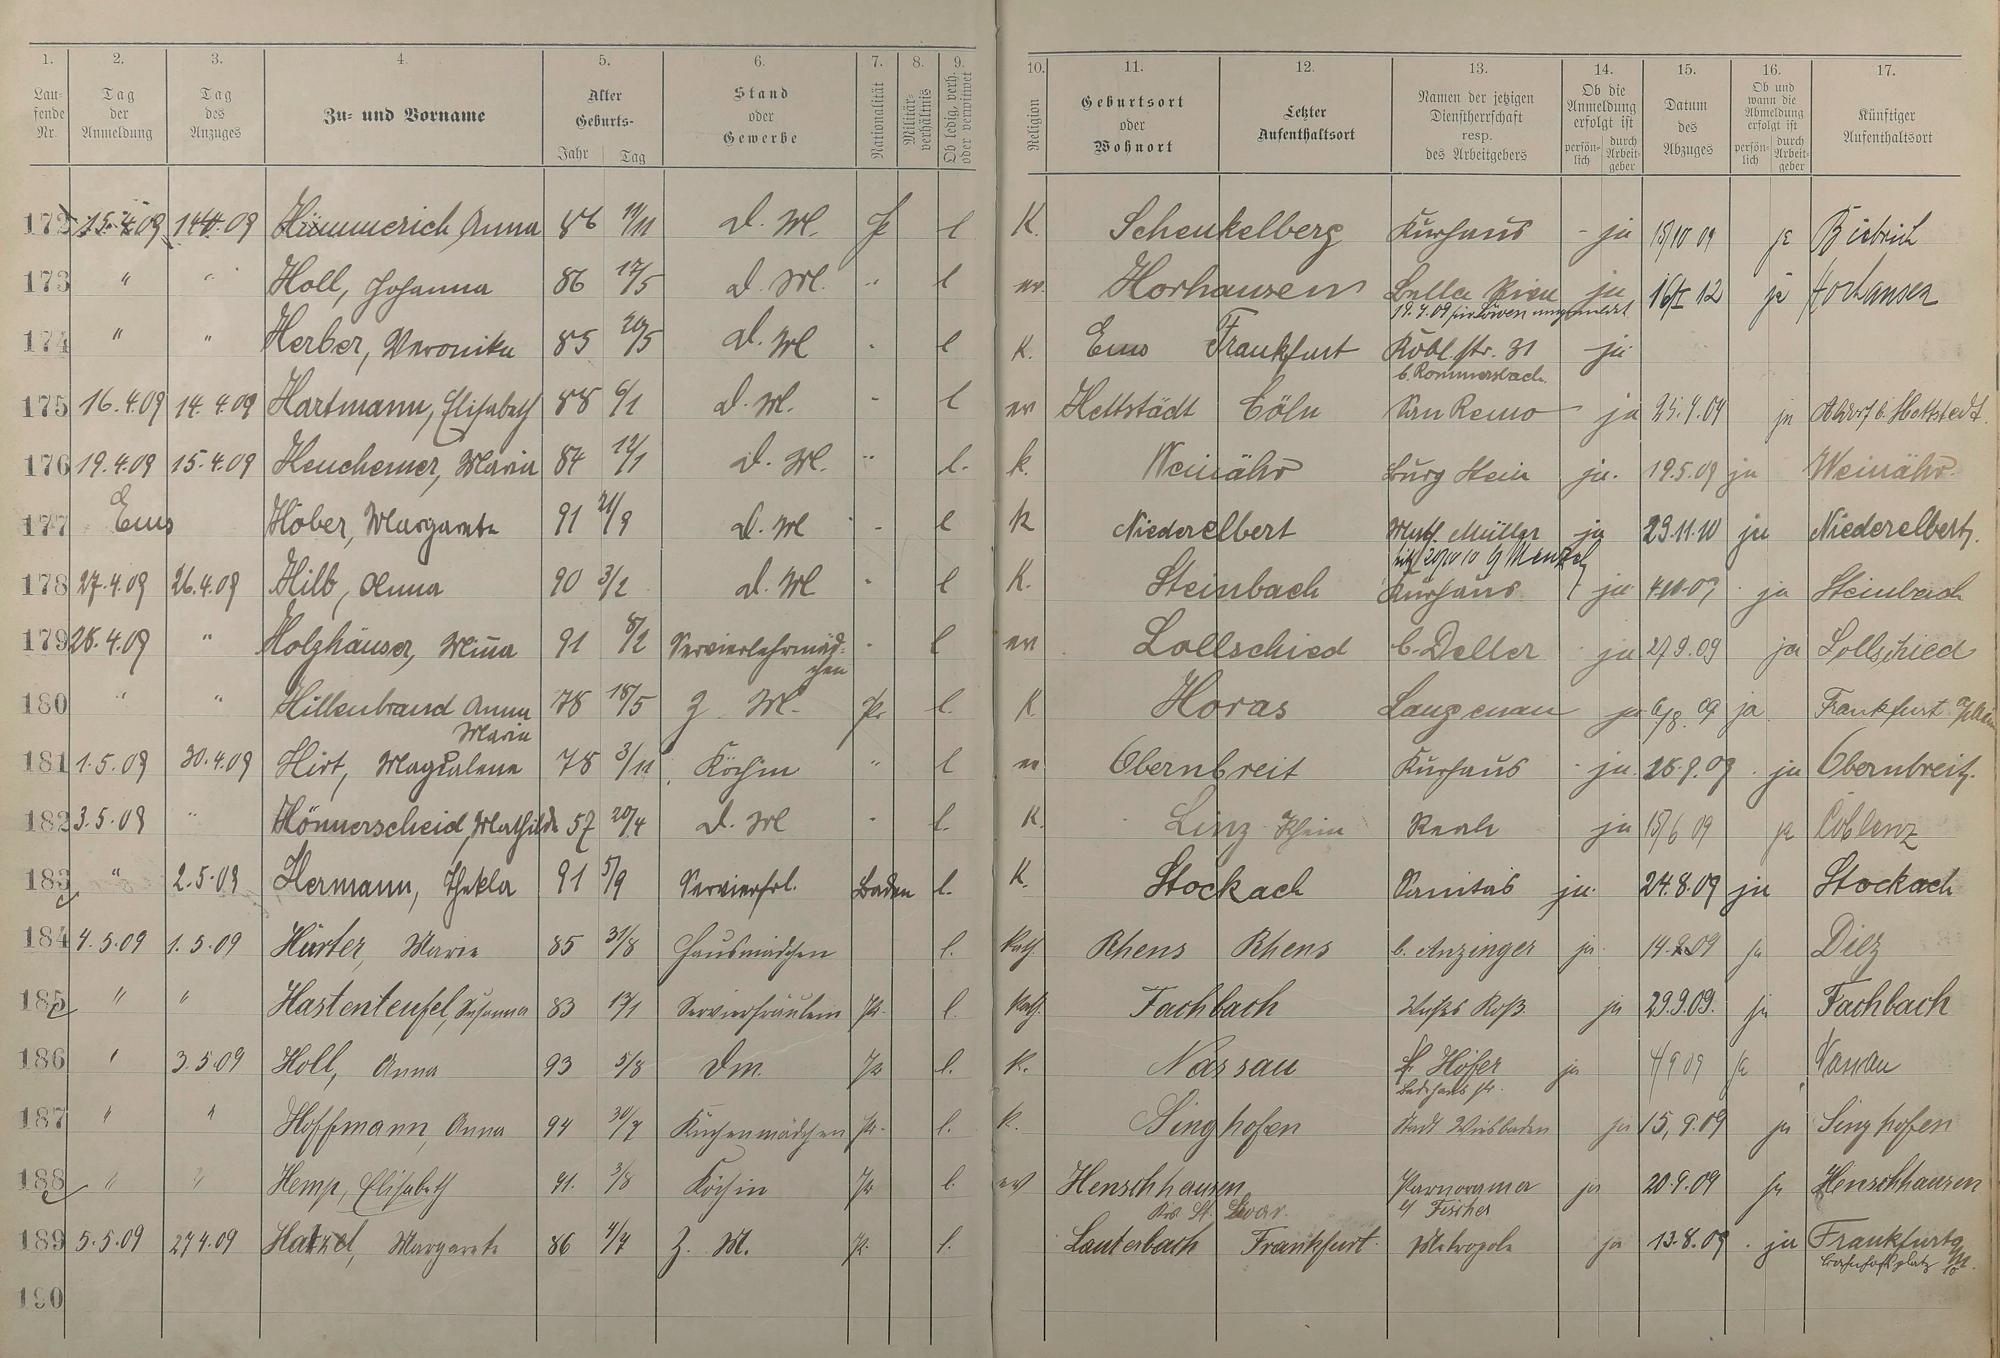 1. 2. 3. 4. 5. 6. 7. 8. 9. 10. 11. 12. 13. 14. 15. 16. 17.
Laufende Nr. Tag der Anmeldung Tag des Anzuges Zu- und Vorname Alter Geburts- Jahr Tag Stand oder Gewerbe Nationalität Militärverhältnis Ob ledig, verh. oder verwitwet Religion Geburtsort oder Wohnort Letzter Aufenthaltsort Namen der jetzigen Dienstherrschaft resp. des Arbeitgebers Ob die Anmeldung erfolgt ist persönlich durch Arbeitgeber Datum des Abzuges Ob und wann die Abmeldung erfolgt ist persönlich durch Arbeitgeber Künftiger Aufenthaltsort
172 15.4.09 14.4.09 Hümmerich Anna 86 D. M. l K. Schenkelberg Kurhaus - ja 15/10 09 ja Biebrich
173 " " Holl, Johanna 86 17/5 D. M. " l ev. Horhausen Bella Riva ja 16/I 12 ja Horhausen
19.4.09
174 " " Herber, Veronika 85 20/5 D. M " l K. Ems Frankfurt Kobl. str. 31 ja
b. Rommersbach.
175 16.4.09 14.4.09 Hartmann, Elisabeth 88 6/1 D. M. " l ev Hettstädt Cöln San Remo ja 25.4.09 ja b. Hettstedt.
176 19.4.09 15.4.09 Heuchemer, Maria 87 12/1 D. M. " l. k. Weinähr Burg Stein ja. 19.5.09 ja Weinähr.
177 Ems Höber, Margarete 91 21/9 D. M " l K Niederelbert Müller ja 23.11.10 ja Niederelbert.
Menzel
178 27.4.09 26.4.09 Hilb, Anna 90 3/2 D. M " l K. Steinbach Kurhaus ja 4.10.09 ja Steinbach
179 28.4.09 " Holzhäuser, Mina 91 8/2 Servierlehrmäd- " l ev Lollschied b. Deller ja 27.9.09 ja Lollschied
chen
180 " " Hillenbrand Anna 78 18/5 Z. M. Pr. l. K Horas Langenau ja 6/8. 09 ja Frankfurt
Maria
181 1.5.09 30.4.09 Hirt, Magdalena 78 3/11 Köchin " l ev Obernbreit Kurhaus - ja. 28.9.09 ja Obernbreit.
182 3.5.09 " Hönnerscheid, Mathilde 57 20/4 D. M " l. K. Linz Rhein ja 15/6 09 ja Coblenz
183 " 2.5.09 Hermann, Thekla 91 5/9 Servierfrl. Baden l. K. Stockach Sanitas ja. 24.8.09 ja Stockach
184 4.5.09 1.5.09 Hürter, Marie 85 31/8 Hausmädchen l. kath. Rhens Rhens b. Anzinger ja 14. 09 ja Diez
185 " " Hastenteufel, Susanna 83 13/1 Servierfräulein Pr. l. kath. Fachbach Weißes Roß. ja 29.9.09. ja Fachbach
186 " 3.5.09 Holl, Anna 93 5/8 Dm. Pr l. k. Nassau Höfer ja 4/9 09 ja Nassau
187 " " Hoffmann, Anna 94 30/7 Küchenmädchen Pr. l. k. Singhofen Stadt Wiesbaden ja 15.9.09 ja Singhofen
188 " " Hemp, Elisabeth 91. 3/8 Köchin Pr l. ev Henschhausen Panorama ja 20.9.09 ja Henschhausen
Krs. St. Goar. b/ Fischer
189 5.5.09 27.4.09 Hatzel, Margarete 86 4/7 Z. M. Pr. l. Lauterbach Frankfurt. Metropole ja 13.8.09 ja Frankfurt a/M.
Bahnhofsplatz 10
190